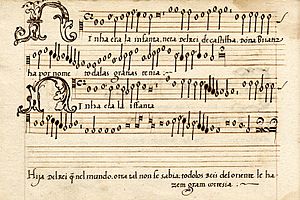 Inha era la infanta, neta delrei de castilha. dona briatiz
ha por nome todalas graçias tenia:
Inha era la iffanta
Hija delrei q̃ nel mundo. otra tal non se sabia: todolos reis del oriente le ha
zem gram cortesia